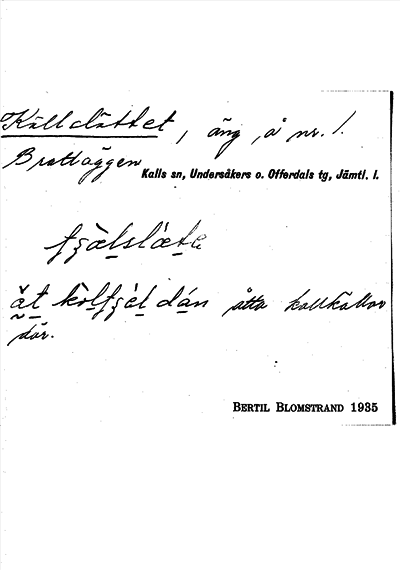 Källslättet, äng, å nr. 1.
Brattäggen
Kalls sn, Undersåkers o. Offerdals tg, Jämtl. l.
åtta kallkällor
där.
BERTIL BLOMSTRAND 1935